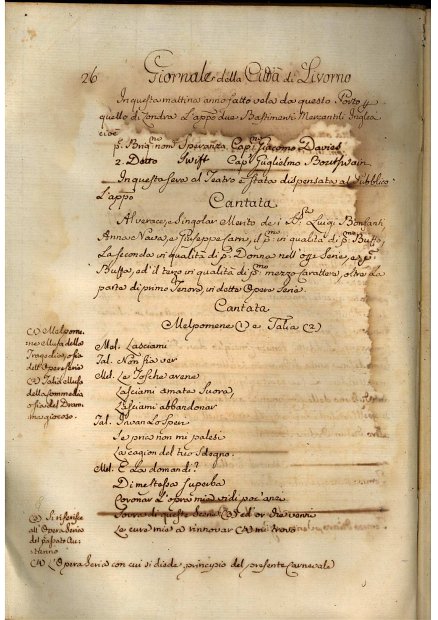 26 Giornale della Città di Livorno
In questa mattina anno fatto vela da questo Porto p
quello di Londra l'appo due Bastimenti Mercantil Inglesi
cioe
p. Brig.no nom. Speranza Cap. Giacomo Davies
2. Detto Swift Cap. Guglielmo
In questa sera al Teatro è stata dispensata al Pubblico
l'appo
Cantata
Al verace, e singolar Merito de i SS. Luigi Bonfanti
Anna e Nava, e Giuseppe il p.mo in qualità di p.mo Buffo,
La seconda in qualità di p. Donna nell' Serie, e p.
Buffa, ed il terzo in qualità di p.mo mezzo Carattere, oltre la
parte di primo Tenore in detta Opera Seria.
Cantata
Melpomene (1) e Talia (2)
(1) Melpome-
ne Musa della
Tragedia, o sia
dell'Opera seria
(2) Talia Musa
della Commedia
o sia del Dram-
ma giocoso.
Mel. Lasciami
Tal. Non fia ver
Mel. Le Tosche arene
Lasciami amata Suora,
Lasciami abbandonar
Tal. Invan lo speri
Se pria non mi palesi
La cagion del tuo sdegno.
Mel. E la domandi?
Di me stessa superba
Coronar l'opra mia vidi poc'anzi
Sovra di queste Scene (3) ed or che
Le cure mia a rinnovar (4) mi trovo
(3) Si riferisce
all'Opera Seria
del passato Au-
tunno
(4) L'Opera Seria con cui si diede principio del presente Carnevale